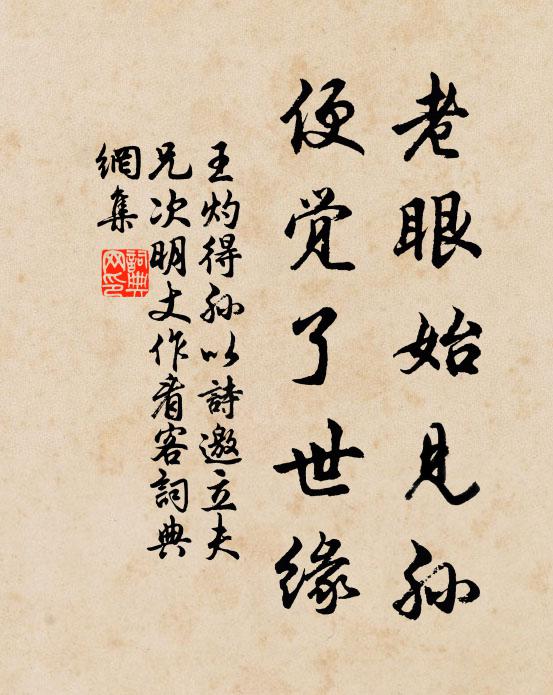 老眼始见孙
便觉了世缘
王灼得孙以詩邀立夫
兄次明丈作肴客詞典
網集
詞典網印